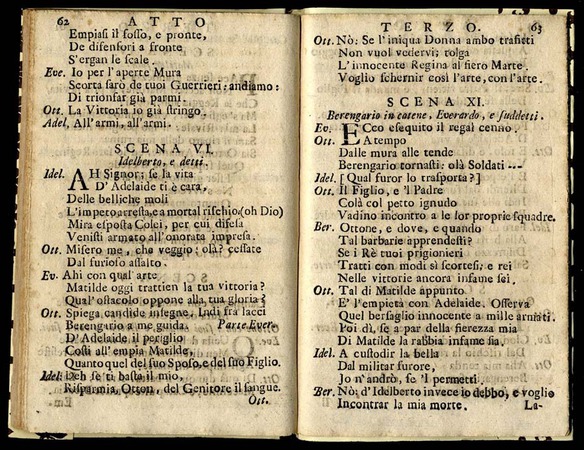 62 ATTO
Empiasi il fosso, e pronte,
De difensori a fronte
S'ergan le scale.
Eve. Io per l'aperte Mura
Scorta sarò de tuoi Guerrieri: andiamo:
Di trionfar già parmi.
Ott. La Vittoria io già stringo.
Adel. All'armi, all'armi.
SCENA VI.
Idelberto, e detti.
Idel. AH Signor; se la vita
D'Adelaide ti è cara,
Delle belliche moli
L'impeto arresta, e a mortal rischio (oh Dio)
Mira esposta Colei, per cui difesa
Venisti armato all'onorata impresa.
Ott. Misero me, che veggio! olà? cessate
Dal furioso assalto.
Ev. Ahi con qual'arte
Matilde oggi trattien la tua vittoria?
Qual'ostacolo oppone alla tua gloria?
Ott. Spiega candide insegne. Indi fra lacci
Berengario a me guida. Parte Ever.
D'Adelaide il periglio
Costi all'empia Matilde,
Quanto quel del suo Sposo, e del suo Figlio.
Idel. Deh se ti basta il mio,
Risparmia, Otton, del Genitore il sangue.
Ott.
TERZO. 63
Ott. Nò: Se l'iniqua Donna ambo trafitti
Non vuol vedervi; tolga
L'innocente Regina al fiero Marte.
Voglio schernir così l'arte, con l'arte.
SCENA XI.
Berengario in catene, Everardo, e suddetti.
Ev. ECco esequito il regal cenno.
Ott. A tempo
Dalle mura alle tende
Berengario tornasti: olà Soldati ---
Idel. [Qual furor lo trasporta?]
Ott. Il Figlio, e 'l Padre
Colà col petto ignudo
Vadino incontro a le lor proprie squadre.
Ber. Ottone, e dove, e quando
Tal barbarie apprendesti?
Se i Rè tuoi prigionieri
Tratti con modi sì scortesi, e rei
Nelle vittorie ancora infame sei.
Ott. Tal di Matilde appunto
E' l'empietà con Adelaide. Osserva
Quel bersaglio innocente a mille armati.
Poi dì, se a par della fierezza mia
Di Matilde la rabbia infame sia.
Idel. A custodir la bella
Dal militar furore,
Jo n'andrò, se 'l permetti.
Ber. Nò: d'Idelberto invece io debbo, e voglio
Incontrar la mia morte.
La-